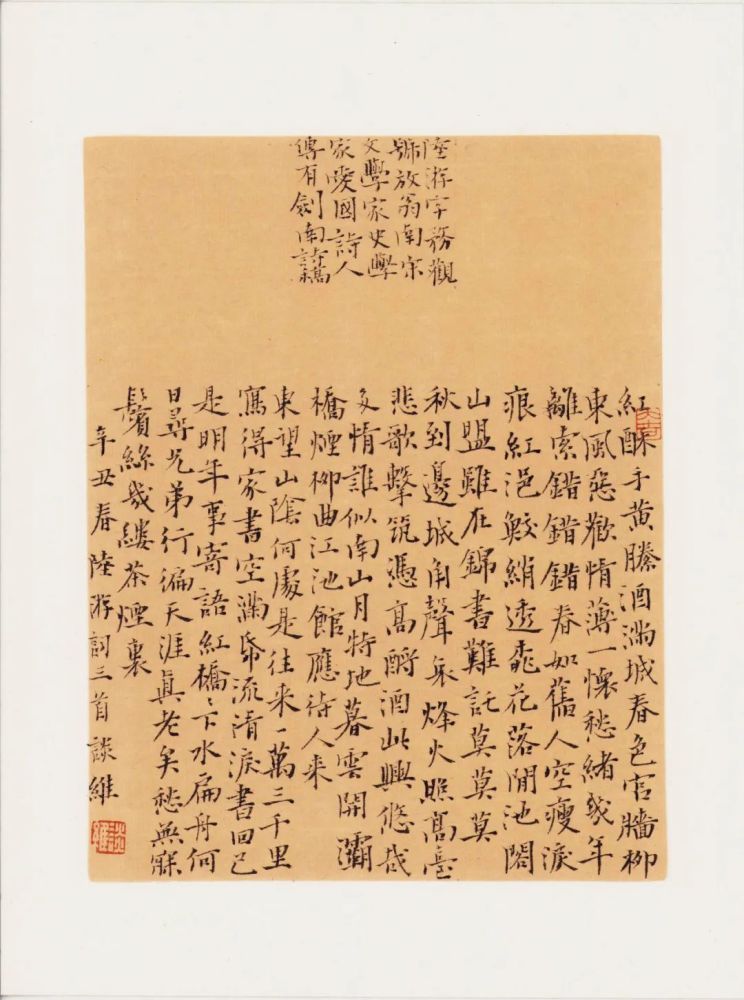 陸游字務觀
號放翁南宋
文學家史學
家愛國詩人
傳有劍南詩稿
紅酥手黃縢酒滿城春色宮牆柳
東風惡歡情薄一懷愁緒幾年
離索錯錯錯春如舊人空瘦淚
痕紅浥鮫綃透桃花落閒池閣
山盟雖在錦書難託莫莫莫
秋到邊城角聲哀烽火照高臺
悲歌擊筑憑高酹酒此興悠哉
多情誰似南山月特地暮雲開灞
橋煙柳曲江池館應待人来
東望山陰何處是往来一萬三千里
寫得家書空滿帋流清淚書回已
是明年事寄語紅橋橋下水扁舟何
日尋兄弟行徧天涯真老矣愁無寐
鬢絲幾縷茶煙裏
辛丑春陸游詞三首談維
談維